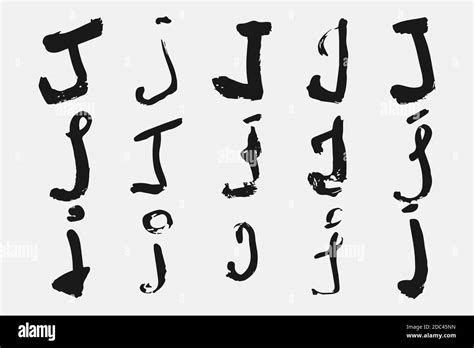 J j J J J
J J j J j
j j J j j
alamy
Image ID: 2DC45NN
www.alamy.com